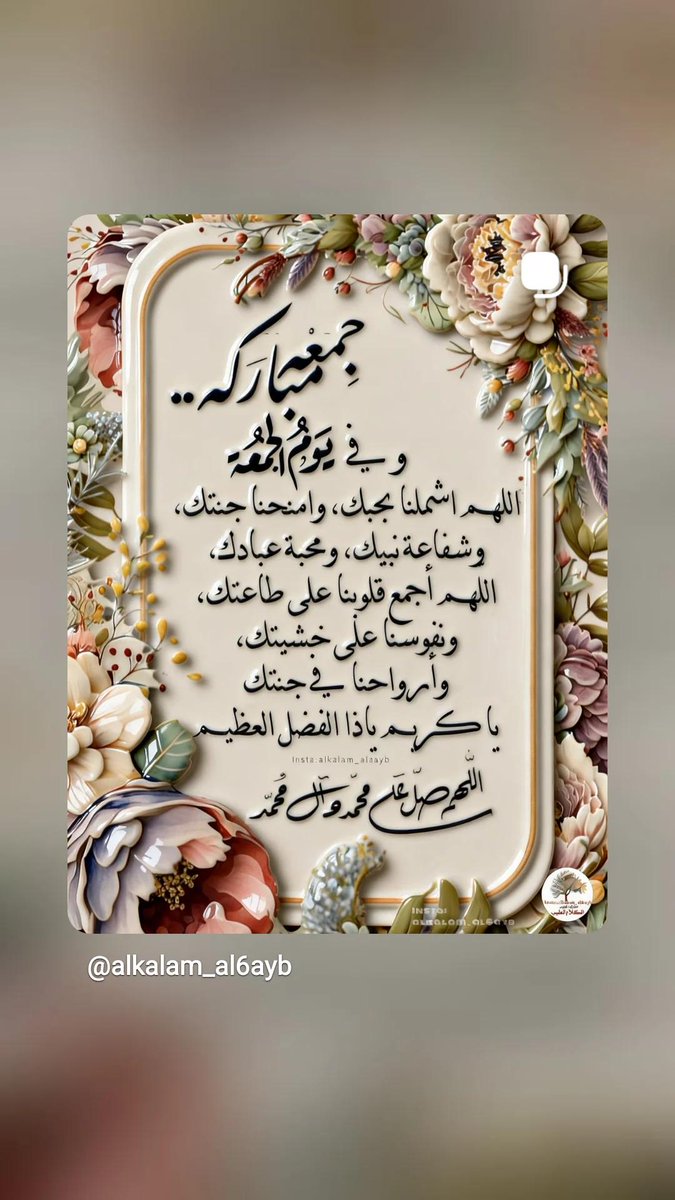 جمعه مباركه ..
و في يَومُ الجمُعُة
اللهم اشملنا بحبك، وامنحنا جنتك،
وشفاعة نبيك، ومحبة عبادك،
اللهم أجمع قلوبنا على طاعتك،
ونفوسنا على خشيتك،
وأرواحنا في جنتك
يا كريم ياذا الفضل العظيم
Insta:alkalam_al6ayb
اللّهم صلّ على محمّد وآل محمّد
INSTA:
ALKALAM_AL6AYB
الكلام الطيب
@alkalam_al6ayb